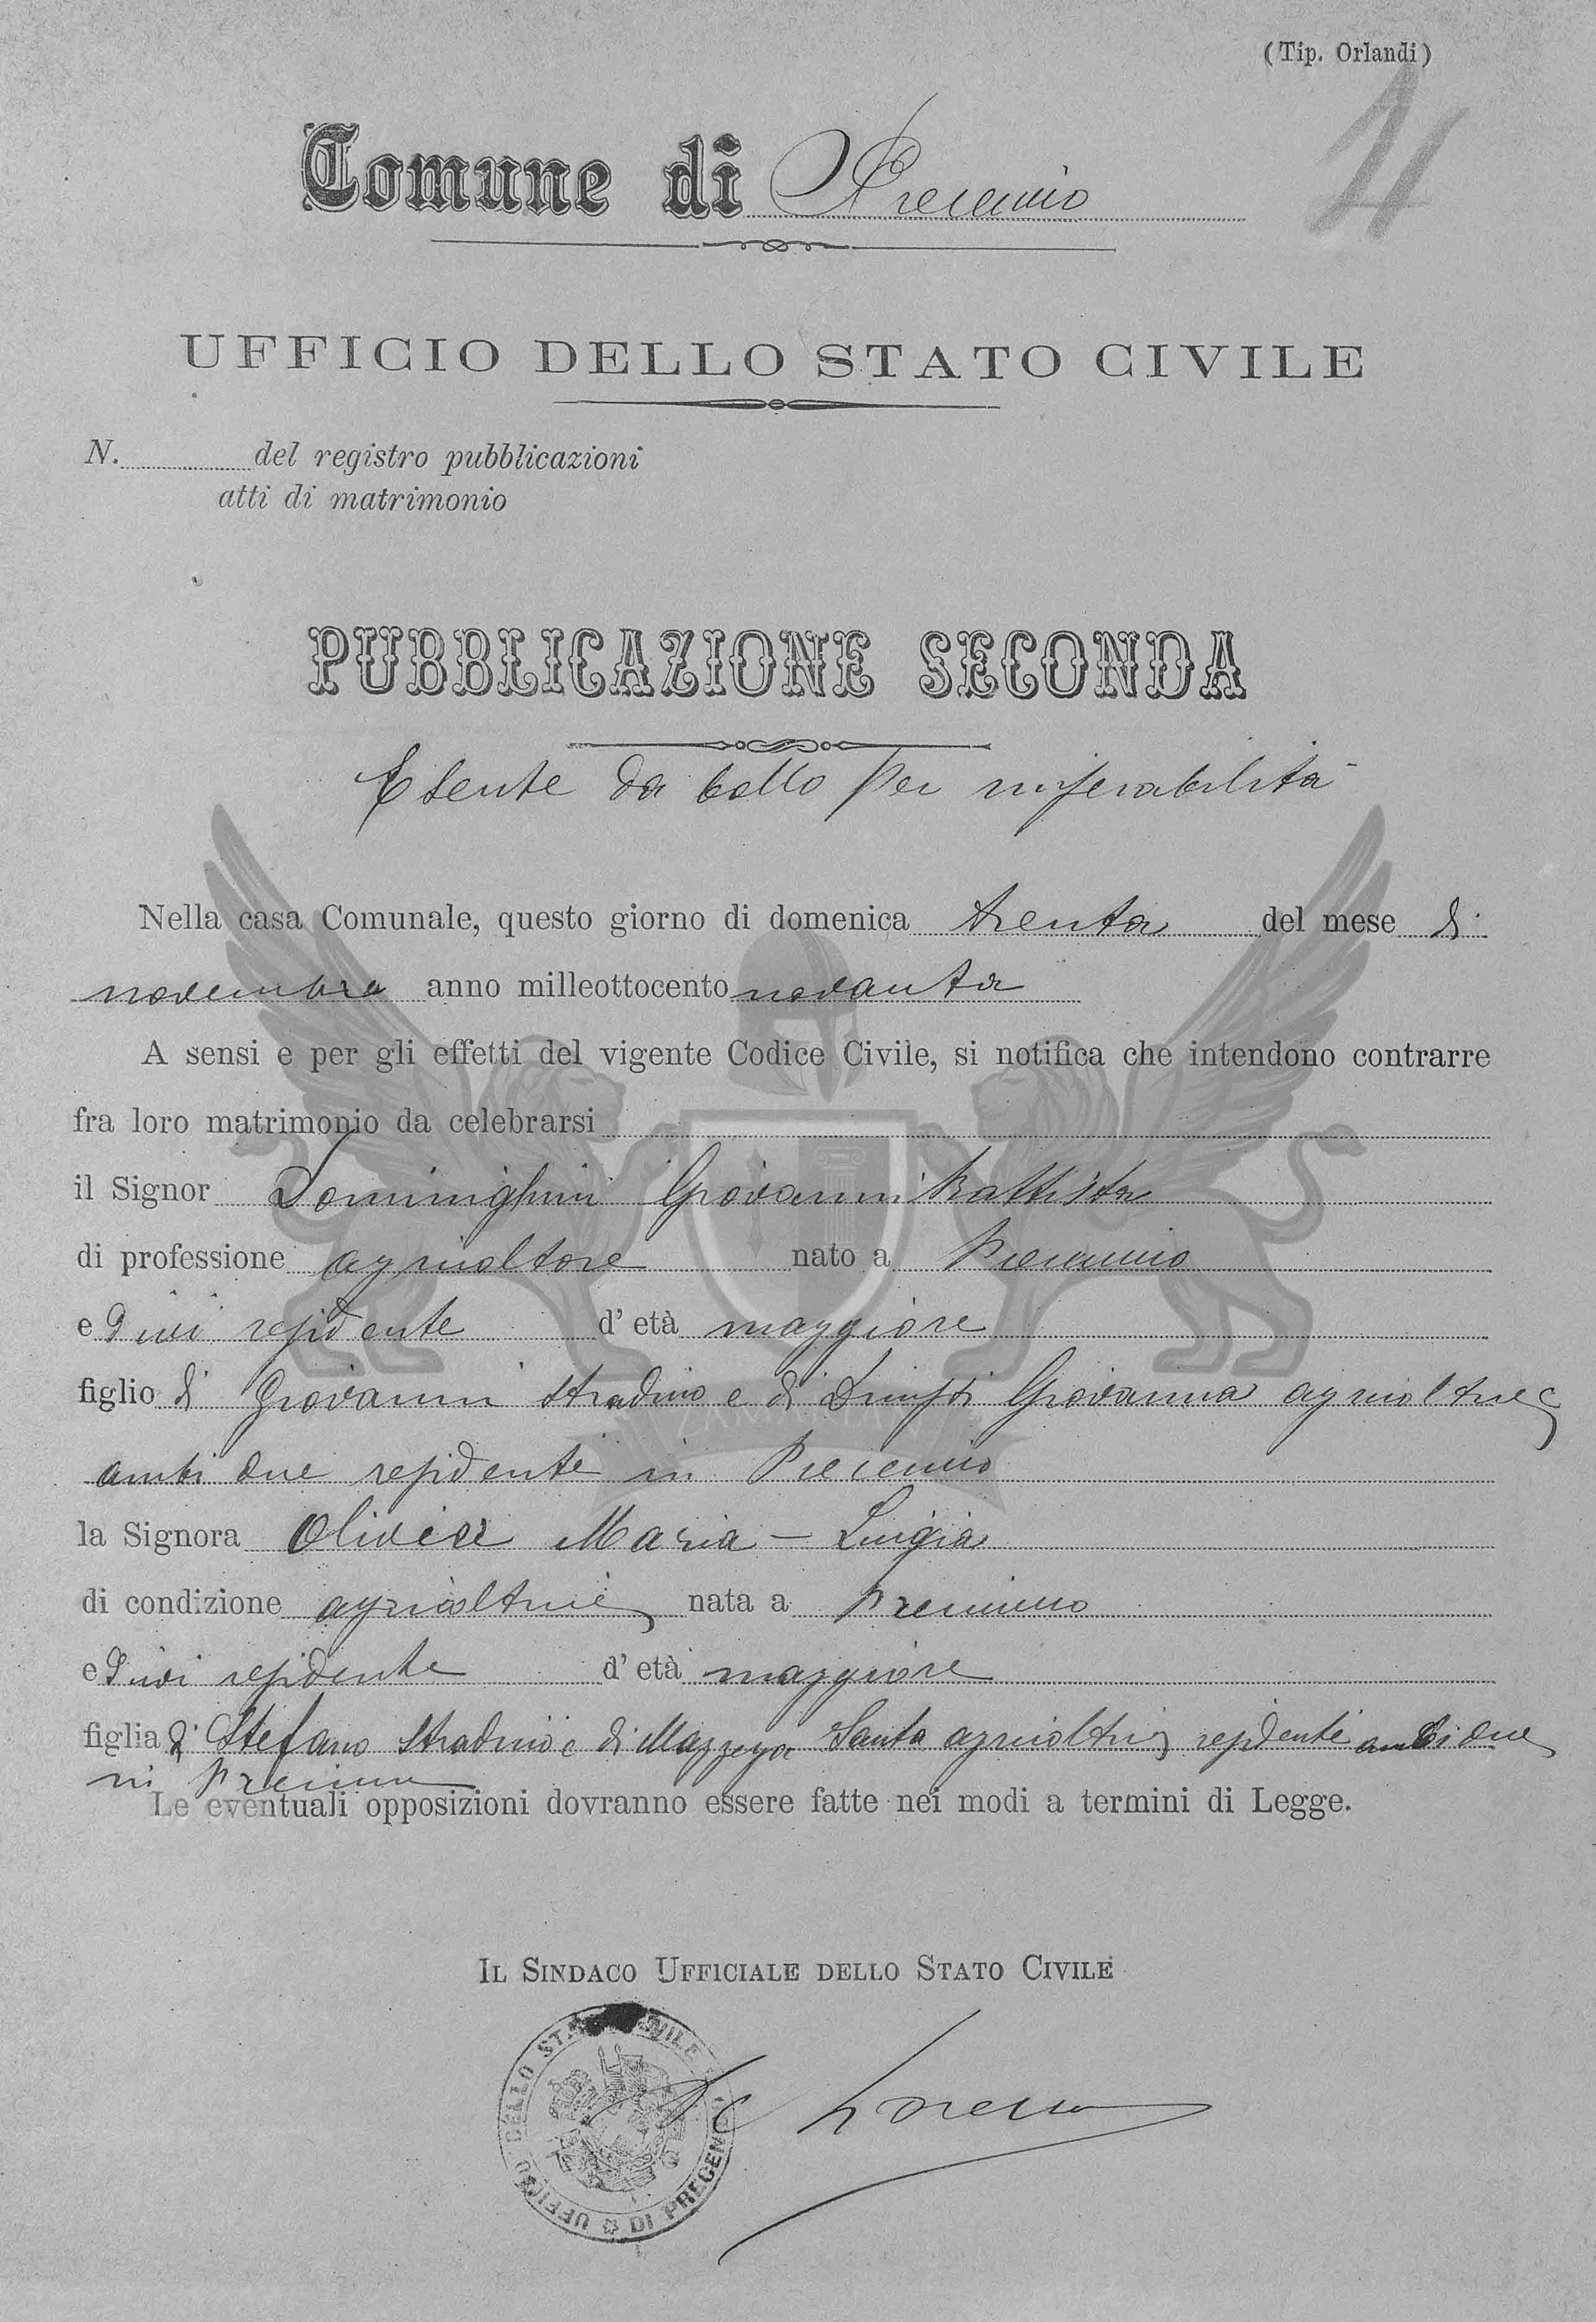 (Tip. Orlandi)
Comune di Precenico
4
UFFICIO DELLO STATO CIVILE
N. del registro pubblicazioni
atti di matrimonio
PUBBLICAZIONE SECONDA
Esente da bollo per miserabilità
Nella casa Comunale, questo giorno di domenica trenta del mese di
novembre anno milleottocento novanta
A sensi e per gli effetti del vigente Codice Civile, si notifica che intendono contrarre
fra loro matrimonio da celebrarsi
il Signor Dominighini Giovanni Battista
di professione agricoltore nato a Precenico
e d'ivi residente d'età maggiore
figlio di Giovanni stradino e di Giovanna agricoltrice
ambi due residenti in Precenico
la Signora Olivier Maria - Luigia
di condizione agricoltrice nata a Precenico
e d'ivi residente d'età maggiore
figlia di Stefano stradino e di Mazzega Santa agricoltrice residenti ambi due
in Precenico
Le eventuali opposizioni dovranno essere fatte nei modi a termini di Legge.
IL SINDACO UFFICIALE DELLO STATO CIVILE
UFFICIO DELLO STATO CIVILE DI PRECENICO